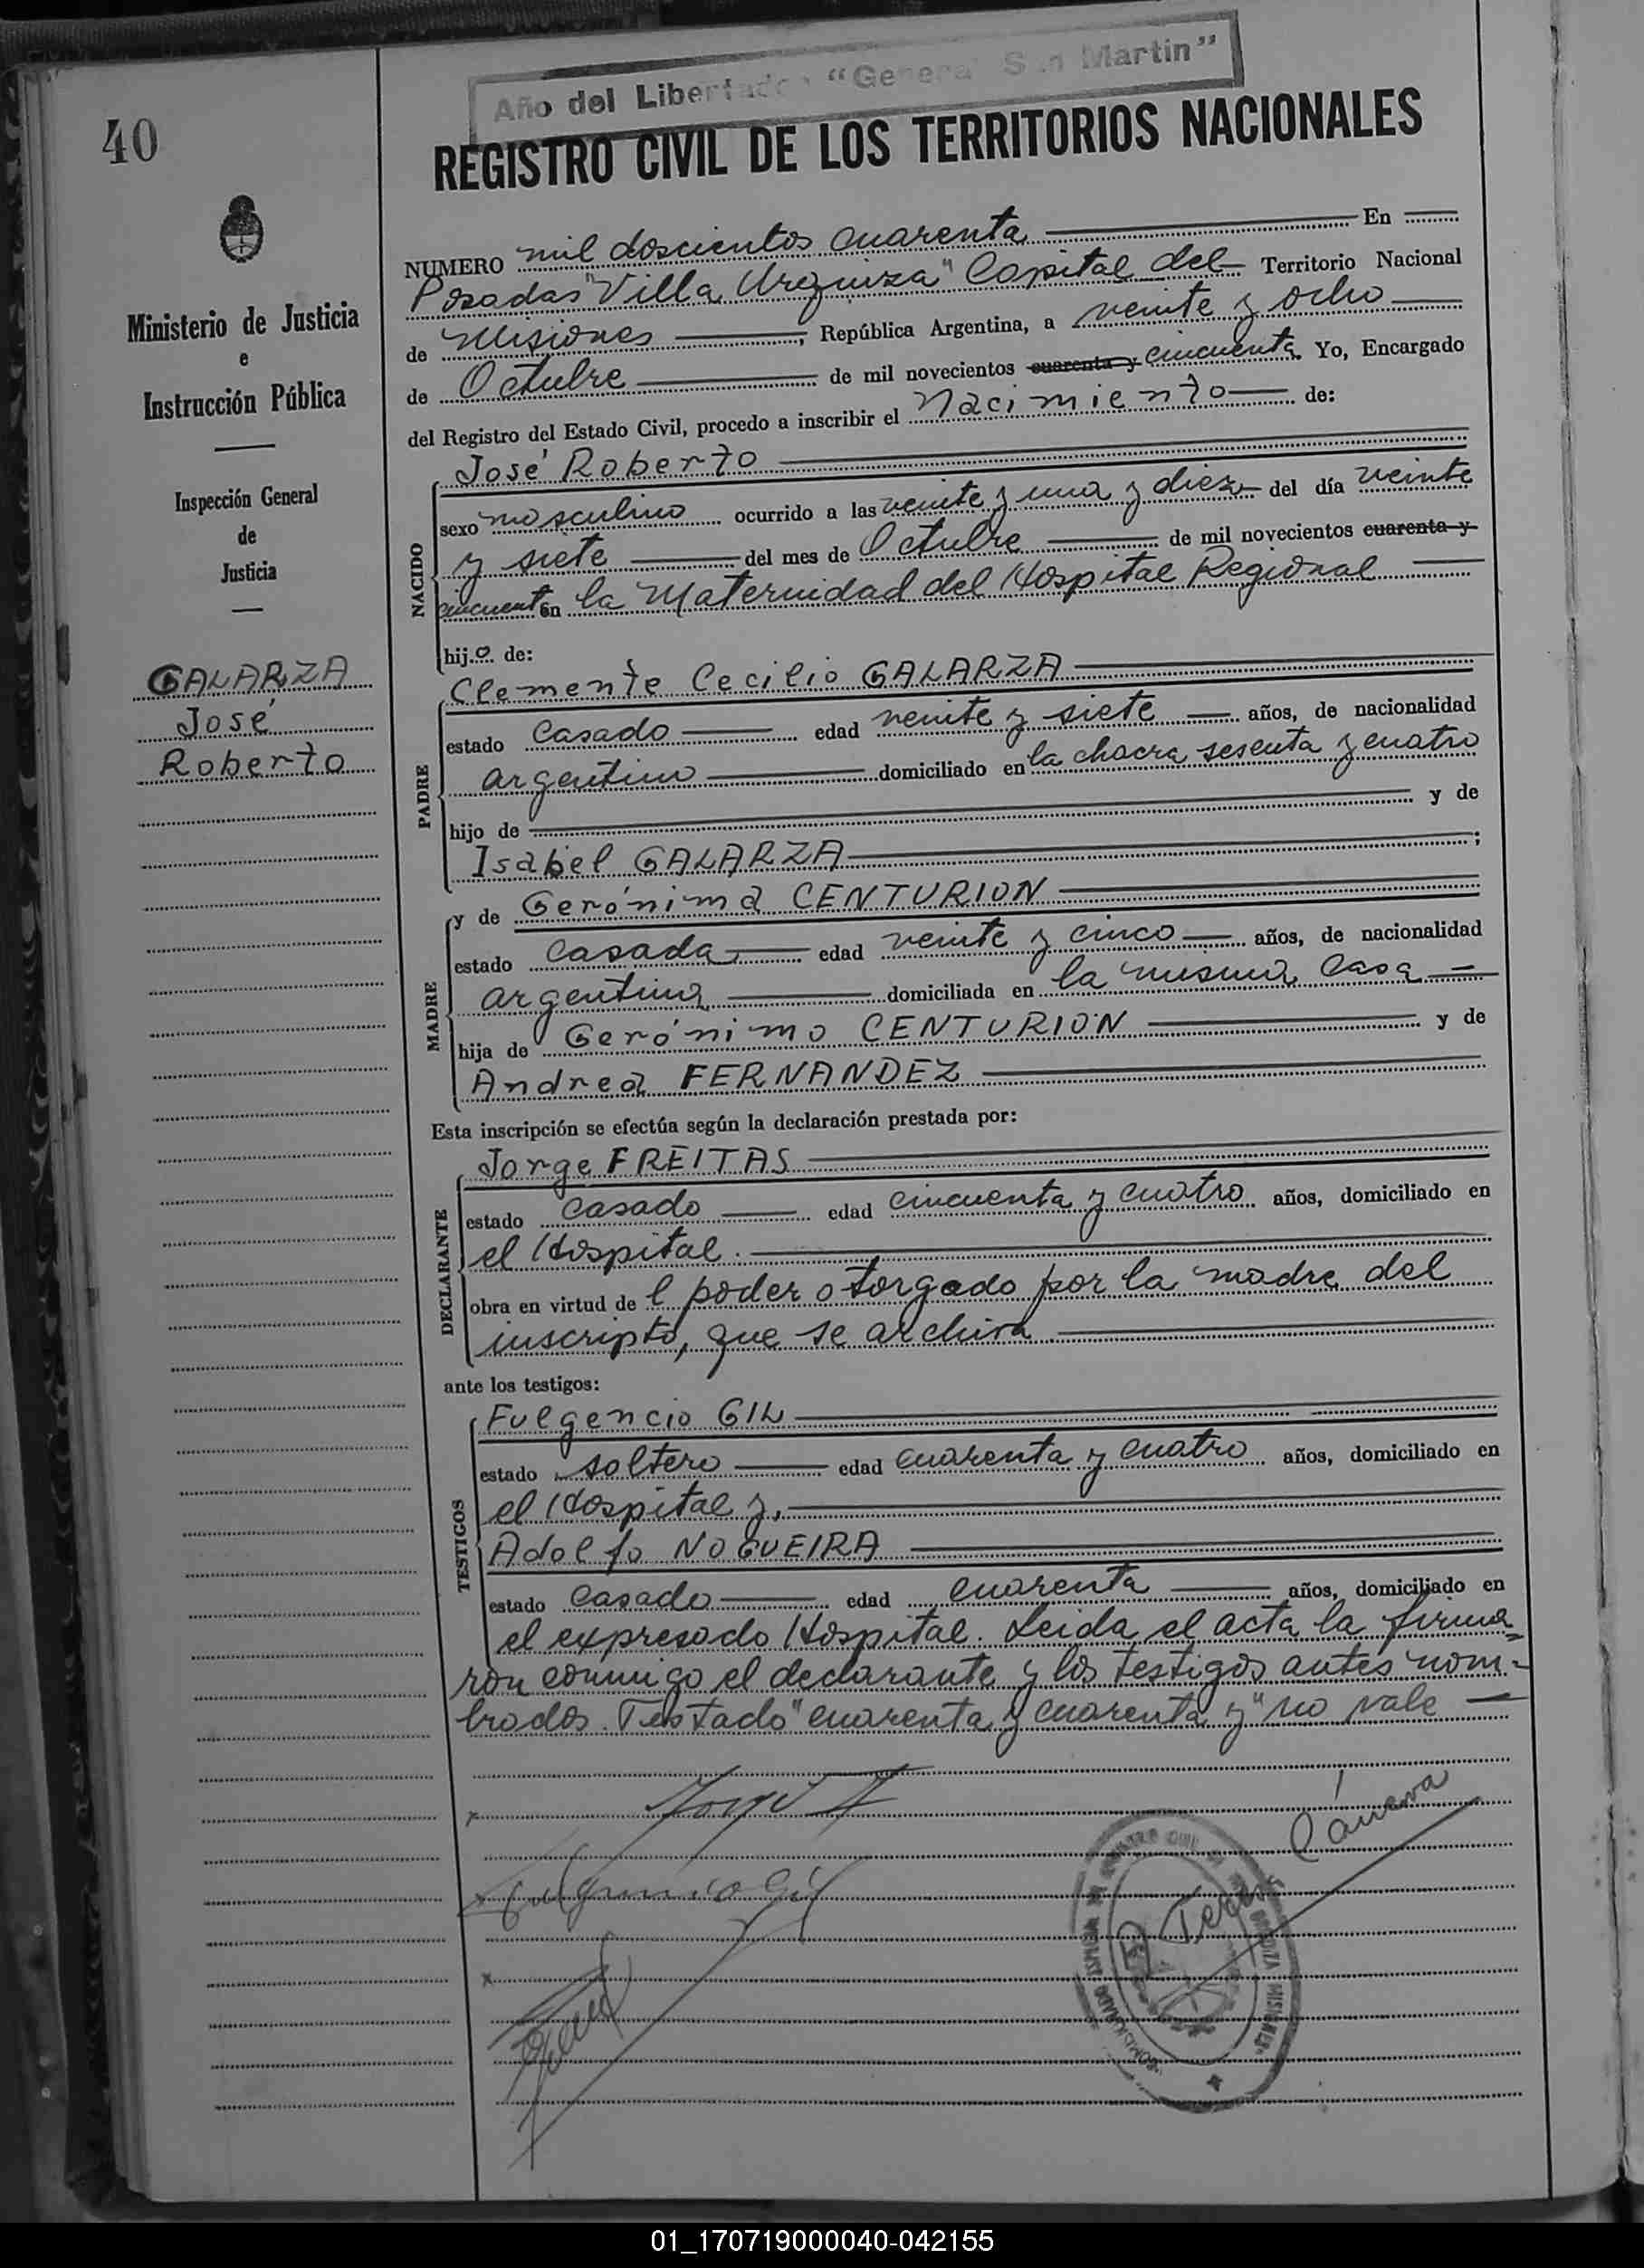 Año del Libertador "General San Martin"
40
REGISTRO CIVIL DE LOS TERRITORIOS NACIONALES
Ministerio de Justicia
e
Instrucción Pública
Inspección General
de
Justicia
GALARZA
José
Roberto
NUMERO mil doscientos cuarenta En
Posadas "Villa Urquiza" Capital del Territorio Nacional
de Misiones, República Argentina, a veinte y ocho
de Octubre de mil novecientos cuarenta y cincuenta Yo, Encargado
del Registro del Estado Civil, procedo a inscribir el Nacimiento de:
NACIDO
José Roberto
sexo masculino ocurrido a las veinte y una y diez del día veinte
y siete del mes de Octubre de mil novecientos cuarenta y
cincuenta en la Maternidad del Hospital Regional
hijo de:
PADRE
Clemente Cecilio GALARZA
estado casado edad veinte y siete años, de nacionalidad
argentino domiciliado en la chacra sesenta y cuatro
hijo de y de
Isabel GALARZA;
MADRE
y de Gerónima CENTURION
estado casada edad veinte y cinco años, de nacionalidad
argentina domiciliada en la misma casa
hija de Gerónimo CENTURION y de
Andrea FERNANDEZ
Esta inscripción se efectúa según la declaración prestada por:
DECLARANTE
Jorge FREITAS
estado casado edad cincuenta y cuatro años, domiciliado en
el Hospital.
obra en virtud de l poder otorgado por la madre del
inscripto, que se archiva
ante los testigos:
TESTIGOS
Fulgencio GIL
estado soltero edad cuarenta y cuatro años, domiciliado en
el Hospital y,
Adolfo NOGUEIRA
estado casado edad cuarenta años, domiciliado en
el expresado Hospital. Leida el acta la firma=
ron conmigo el declarante y los testigos antes nom-
brados. Testado "cuarenta y cuarenta y" no vale
Jorge F
Cáneva
Fulgencio Gil
01_170719000040-042155